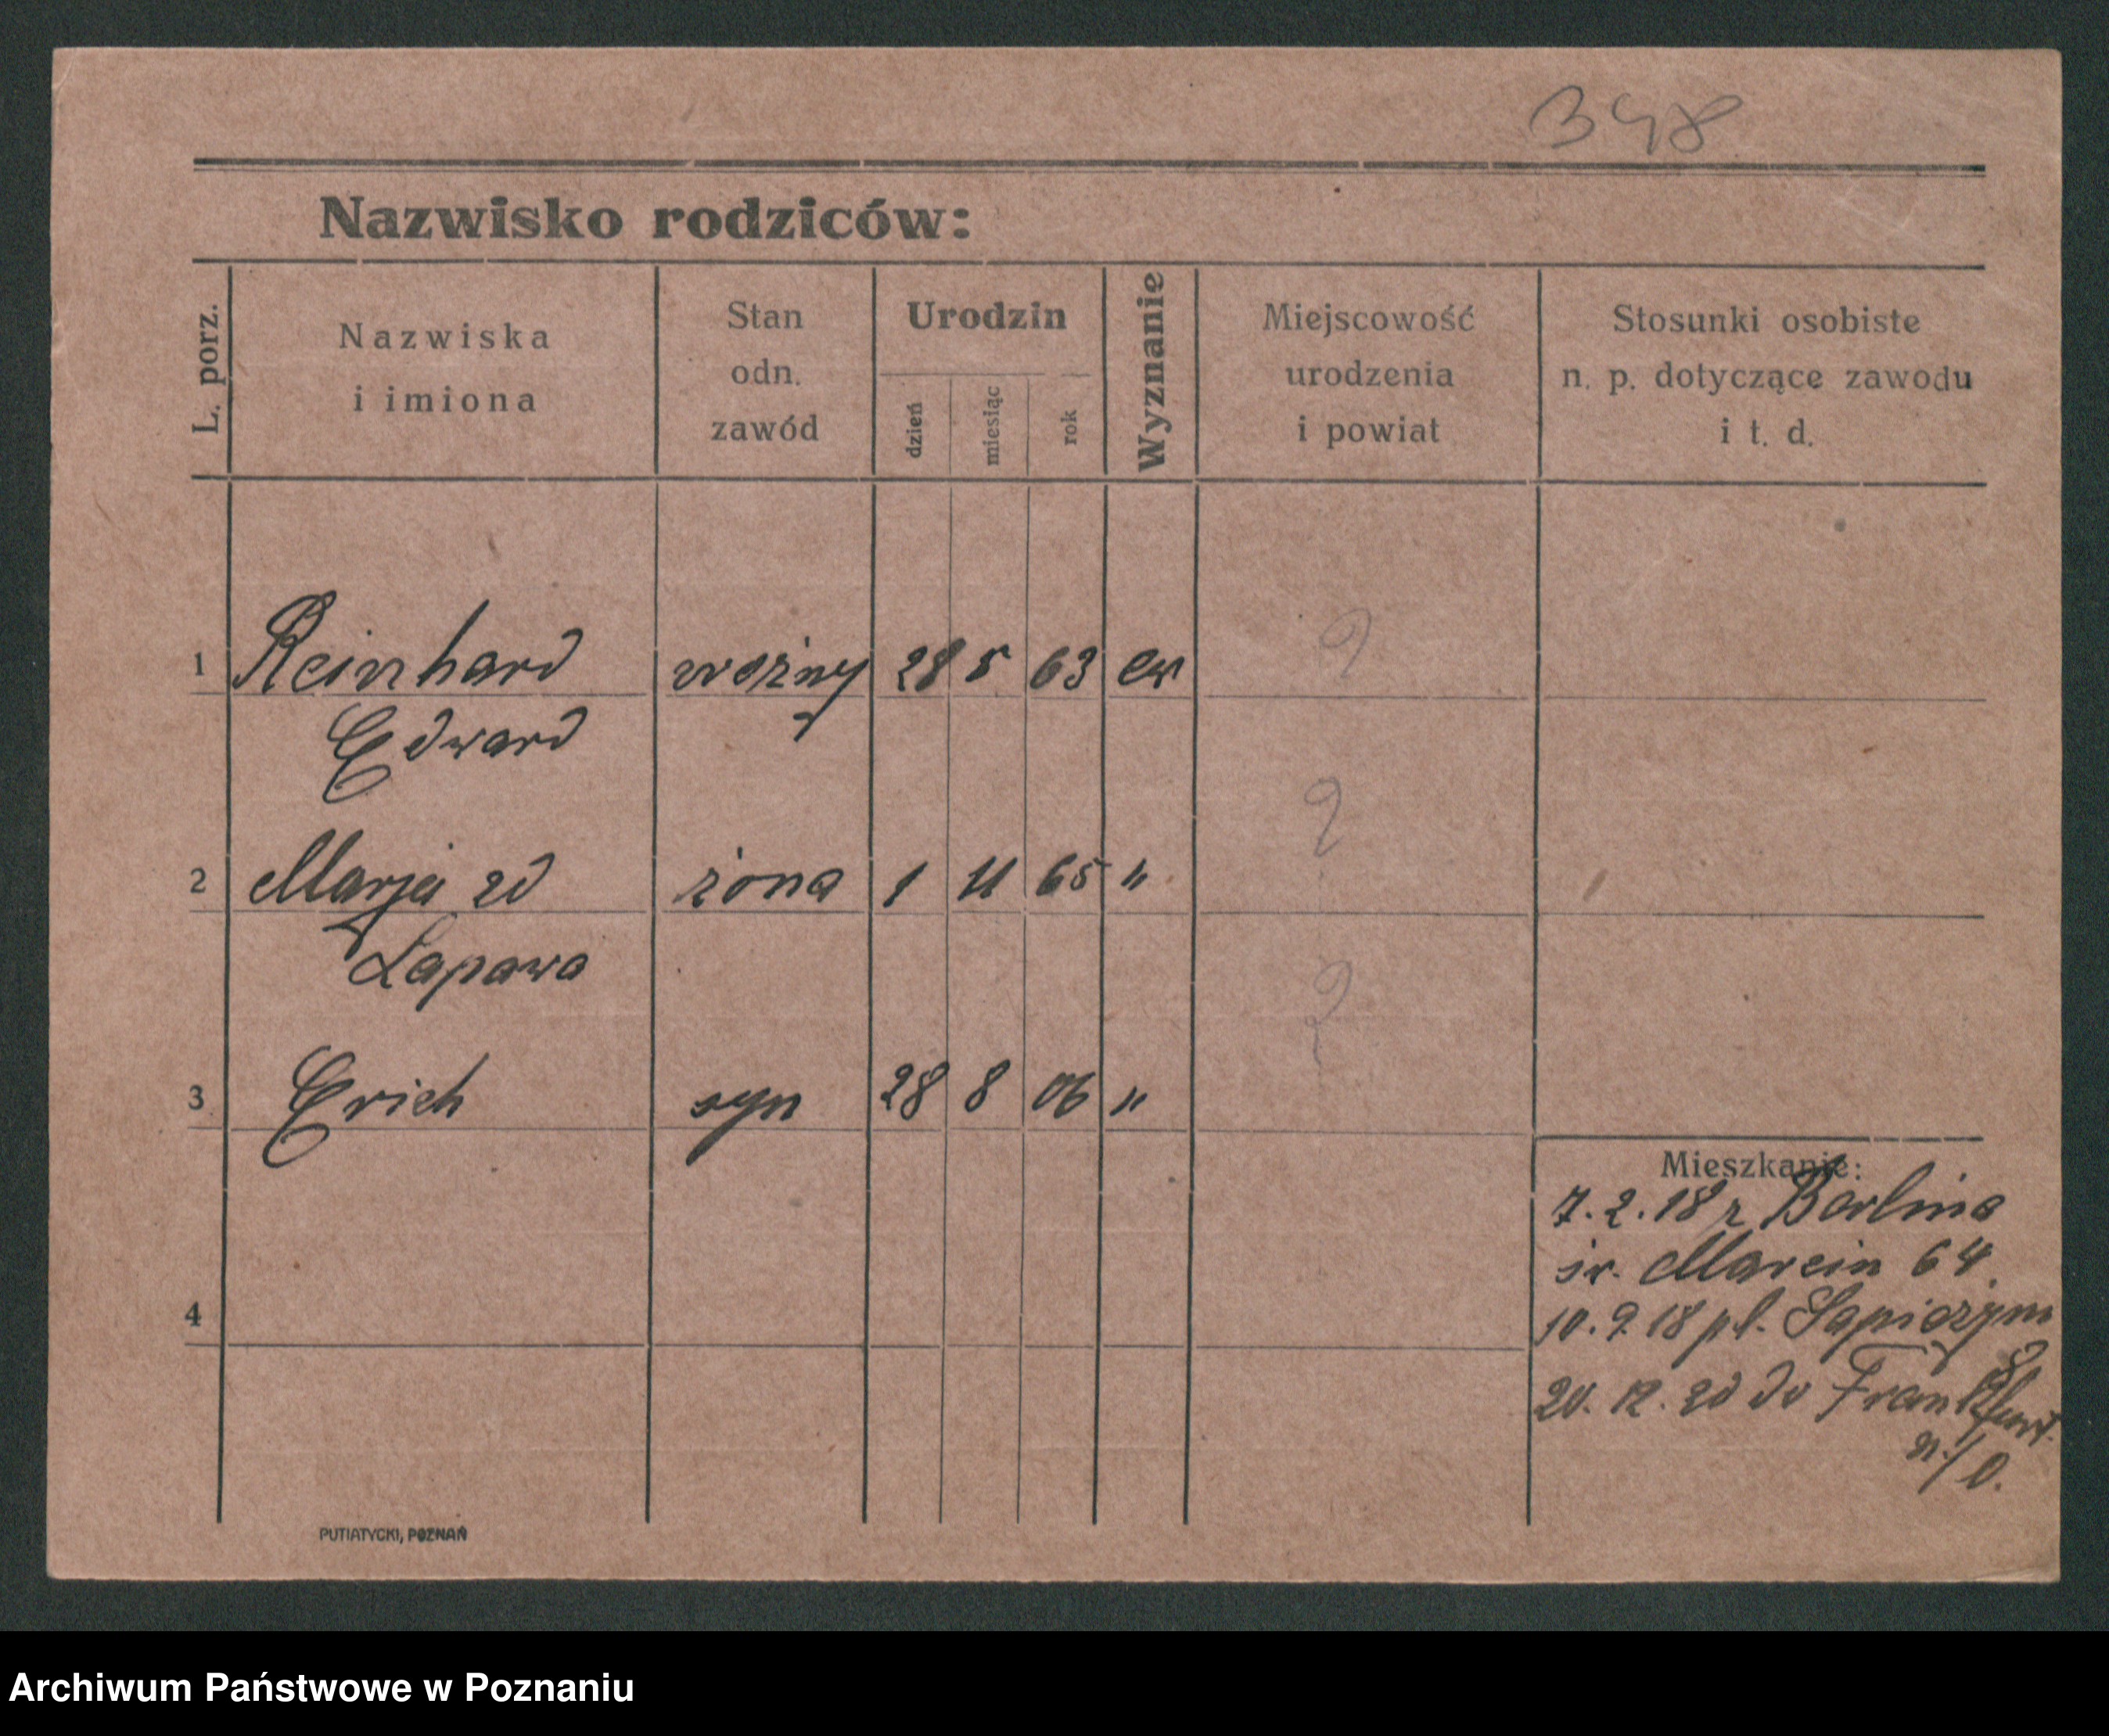 348
Nazwisko rodziców:
L. porz.
Nazwiska
i imiona
Stan
odn.
zawód
Urodzin
dzień
miesiąc
rok
Wyznanie
Miejscowość
urodzenia
i powiat
Stosunki osobiste
n. p. dotyczące zawodu
i t. d.
1 Reinhard woźny 28 5 63 ew ?
Edward
2 Marja zd żona 1 11 65 " ?
Lapawa
3 Erich syn 28 8 06 " ?
4
Mieszkanie:
7.2.18 z Berlina
św. Marcin 64.
10.9.18 pl. Sapieżym
8
20.12.20 do Frankfurt
n./O.
PUTIATYCKI, POZNAŃ
Archiwum Państwowe w Poznaniu